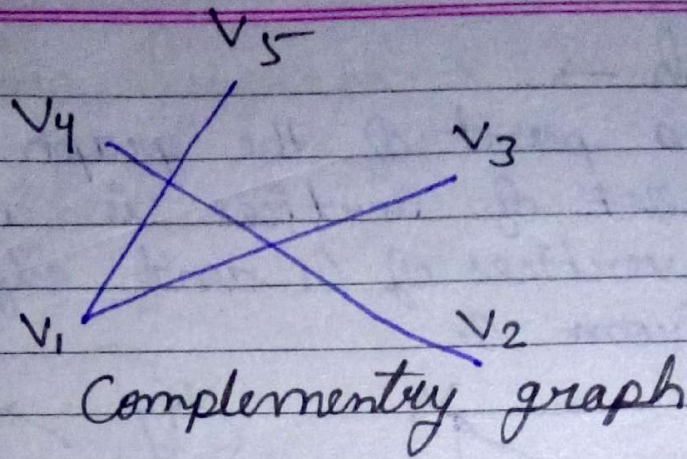 V5
V4
V3
V1
V2
Complementry graph